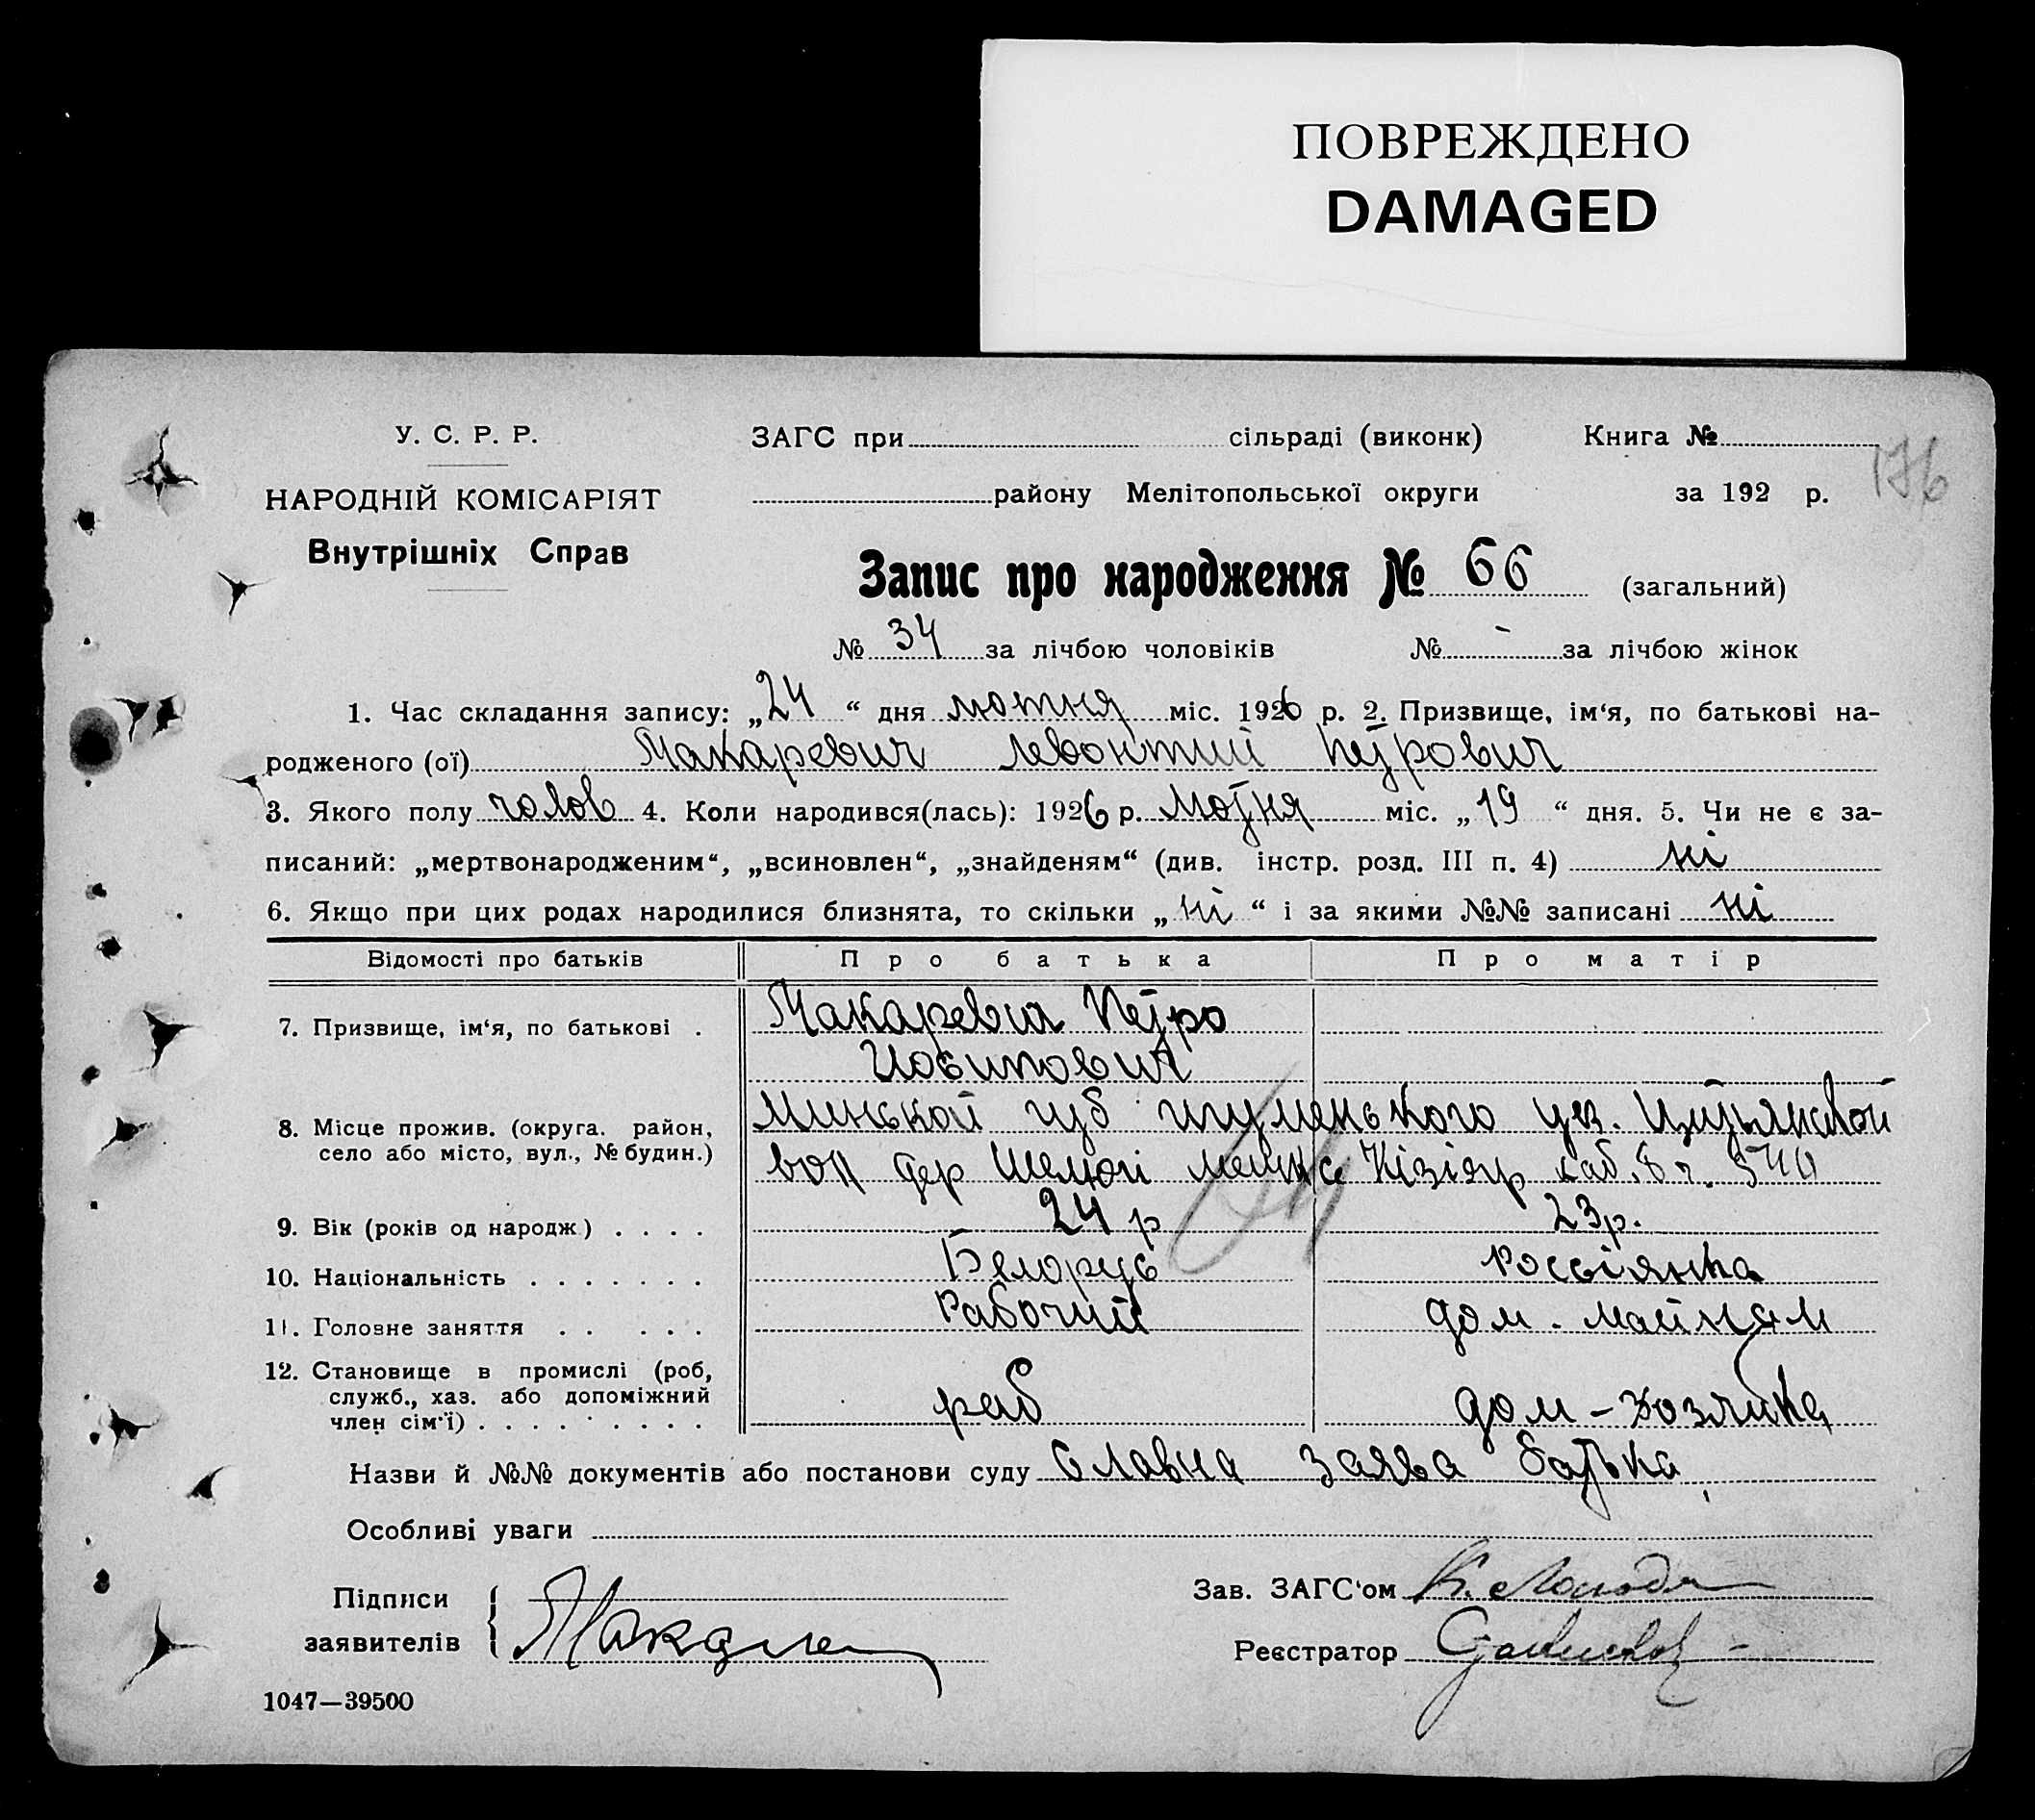 ПОВРЕЖДЕНО
DAMAGED
У. С. Р. Р.
НАРОДНІЙ КОМІСАРІЯТ
Внутрішніх Справ
ЗАГС при сільраді (виконк) Книга №
176
району Мелітопольської округи за 192 р.
Запис про народження № 66 (загальний)
№ 34 за лічбою чоловіків № - за лічбою жінок
1. Час складання запису: „24“ дня лютня міс. 1926 р. 2. Призвище, ім‘я, по батькові на-
родженого (ої) Макаревич Левонтий Петрович
3. Якого полу чолов 4. Коли народився(лась): 1926 р. Лютня міс. „19“ дня. 5. Чи не є за-
писаний: „мертвонародженим“, „всиновлен“, „знайденям“ (див. інстр. розд. III п. 4) ні
6. Якщо при цих родах народилися близнята, то скільки „ні“ і за якими №№ записані ні
Відомості про батьків Про батька Про матір
7. Призвище, ім‘я, по батькові . Макаревич Петро
Иосипович
8. Місце прожив. (округа. район,
село або місто, вул., № будин.)
Минськой губ игуменського уез.
вол дер Кізіяр
9. Вік (років од народж) . . . . 24 р 23 р.
10. Національність . . . . . . . Белорус Россіянка
11. Головне заняття . . . . . Рабочий дом.
12. Становище в промислі (роб,
служб., хаз. або допоміжний
член сім‘ї) . . . . . . . . . раб дом - хозяйка
Назви й №№ документів або постанови суду Словна заява батька
Особливі уваги
Підписи
заявителів
Зав. ЗАГС‘ом
Реєстратор
1047—39500